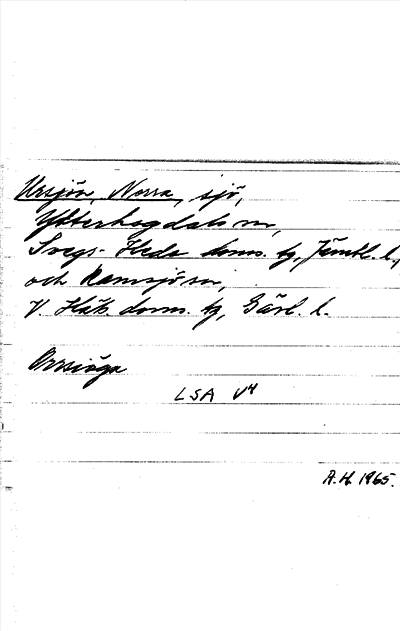 Ursjön, Norra, sjö,
Ytterhogdals sn,
Svegs-Hede doms. tg, Jämtl. l.,
och Ramsjö sn,
V Häls. doms. tg, Gävl. l.
Orrsiöga
LSA V4
A.H. 1965.